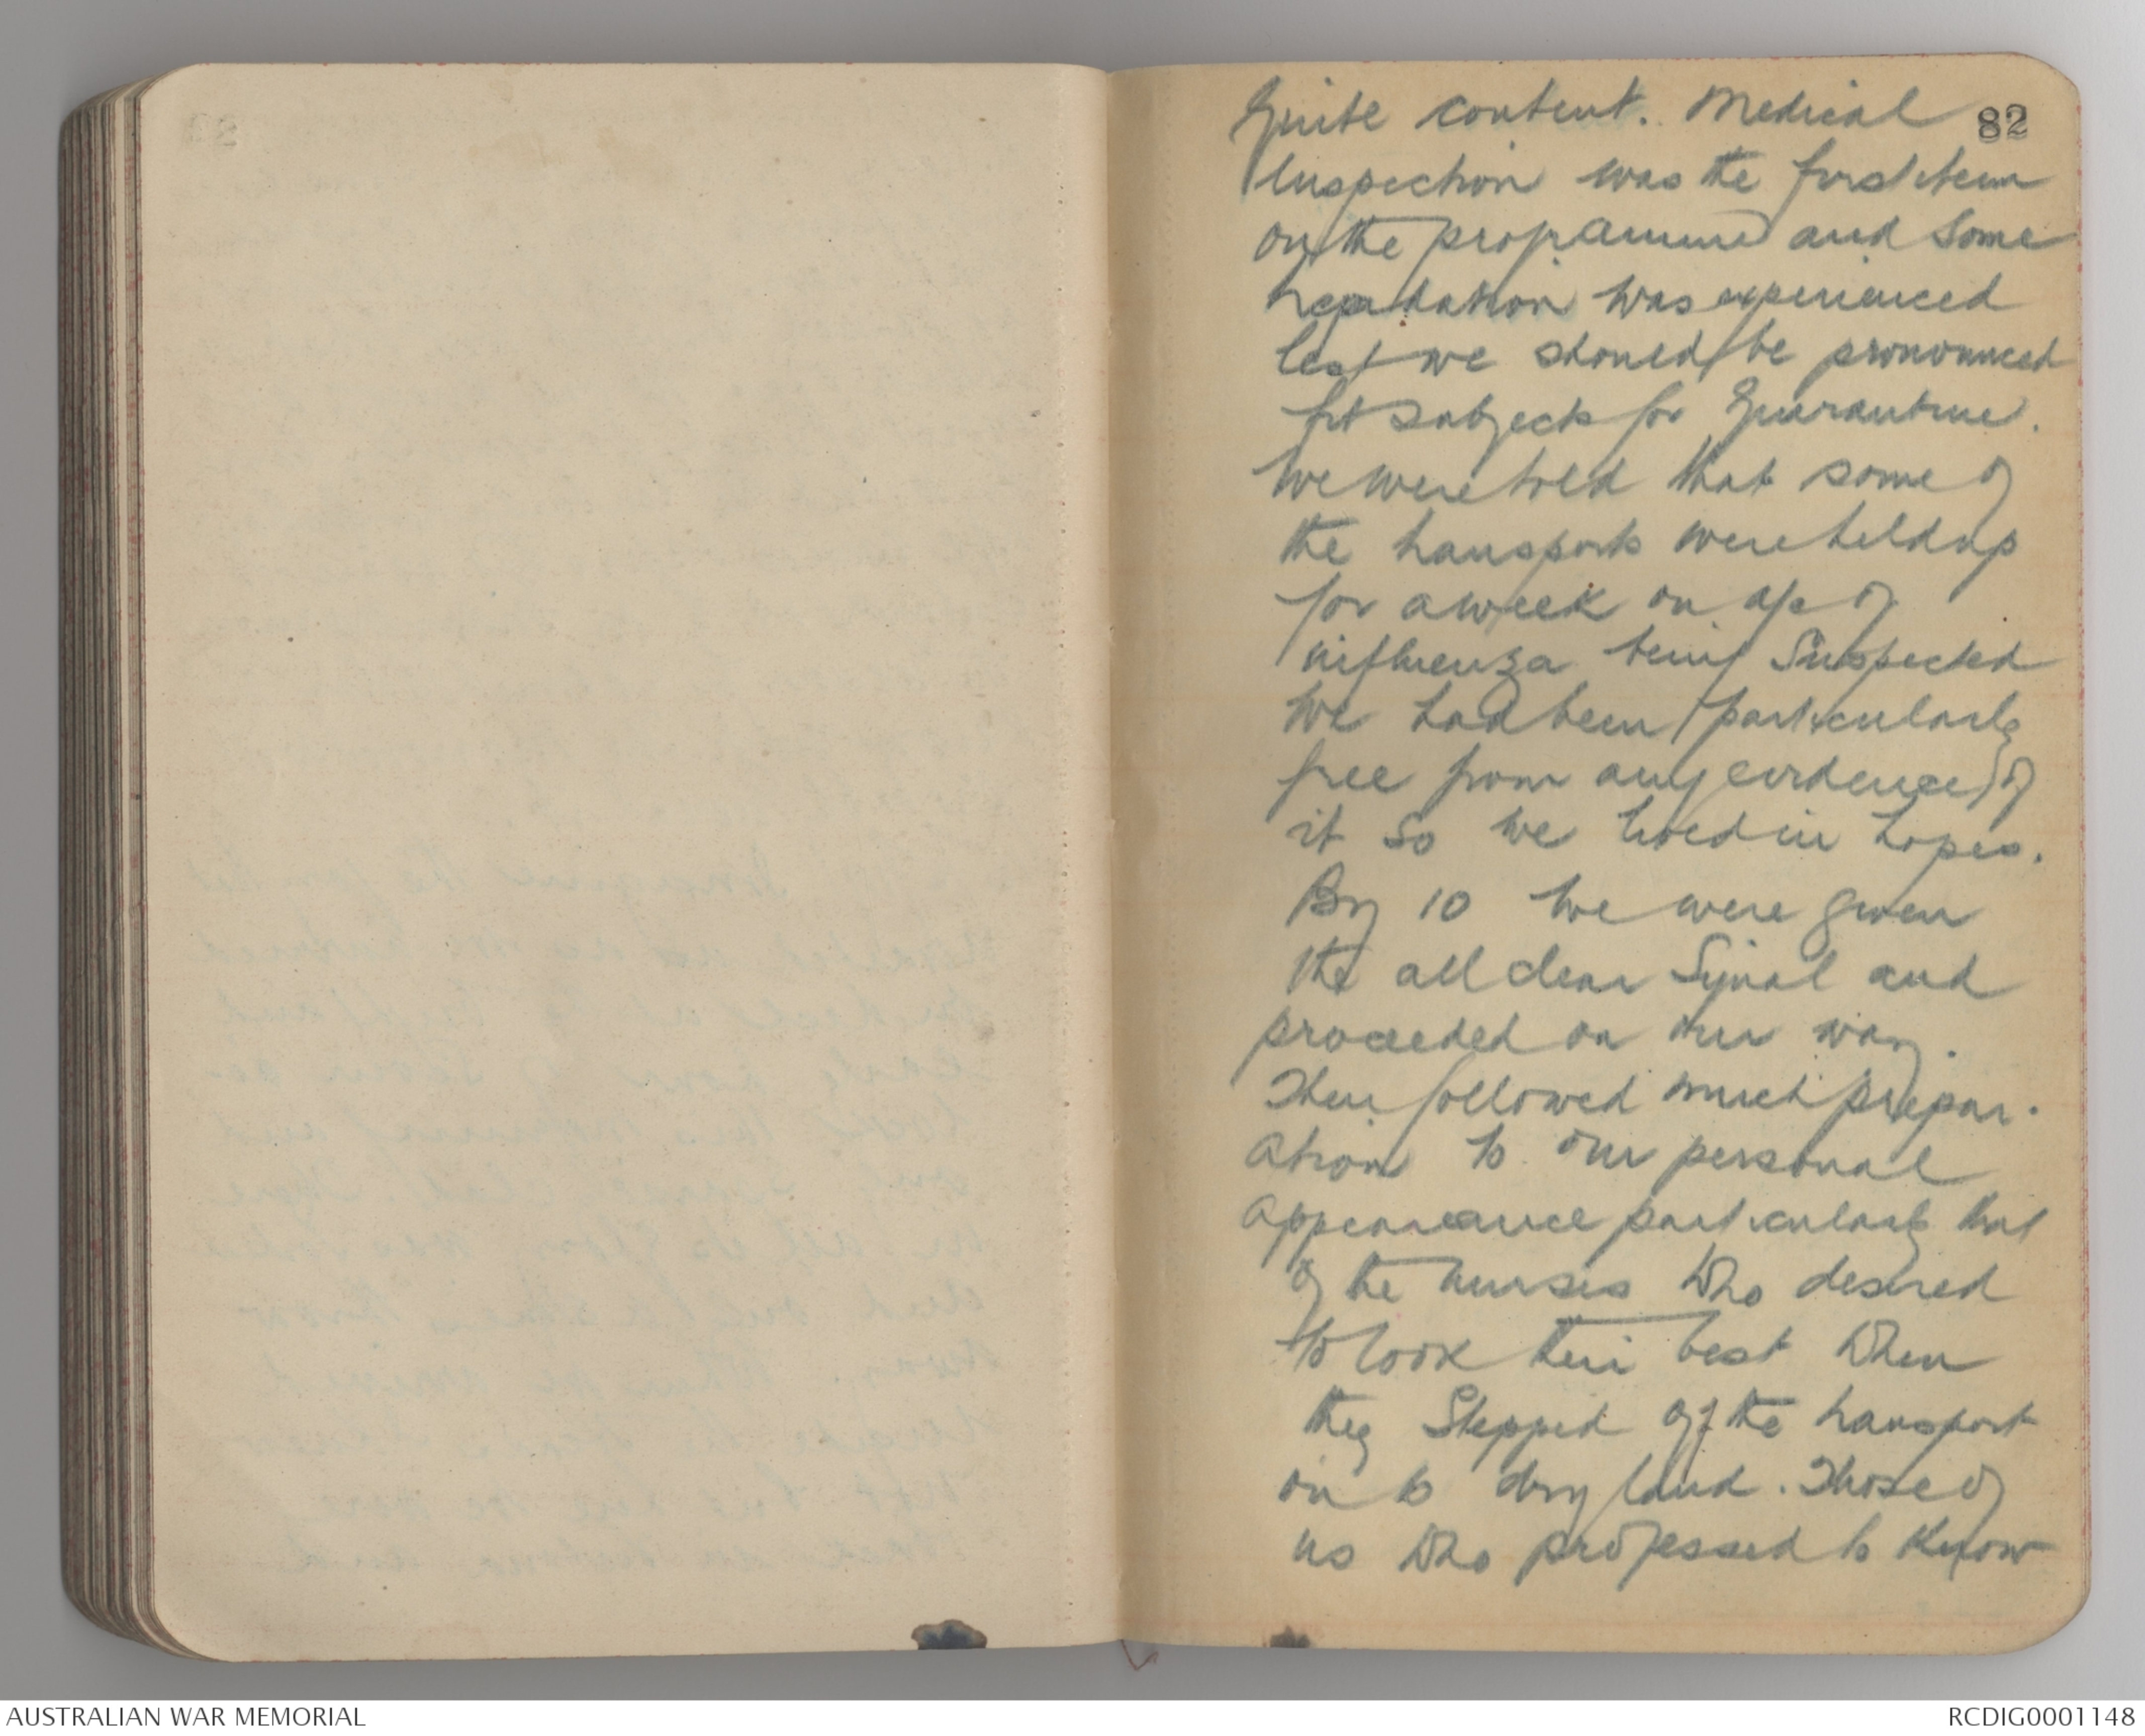 82
Quite content. Medical
Inspection was the first item
on the programme and some
trepidation was experienced
lest we should be pronounced
fit subjects for Quarantine.
We were told that some of
the transports were held up
for a week on a/c of
influenza being Suspected
We had been particularly
free from any evidence of
it so we lived in hopes.
By 10 we were given
the all clear Signal and
proceeded on our way.
Then followed much prepar-
ation to our personal
appearance particularly that
of the nurses who desired
to look their best when
they Stepped off the transport
on to dry land. Those of
us who professed to know
AUSTRALIAN WAR MEMORIAL
RCDIG0001148